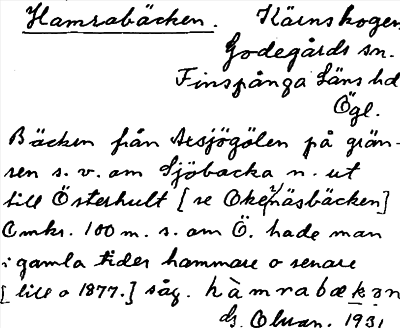 Hamrabäcken. Kärnskogen
Godegårds sn.
Finspånga Läns hd
Ögl.
Bäcken från Assjögölen på grän-
sen s. v. om Sjöbacka n. ut
till Österhult [se Okenäsbäcken]
Omkr. 100 m. s. om Ö. hade man
i gamla tider hammare o senare
[till o 1877.] såg. hàmrabækən
ds. 1931